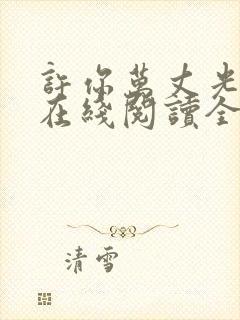 許你萬丈光
在綫閱讀全
清雪